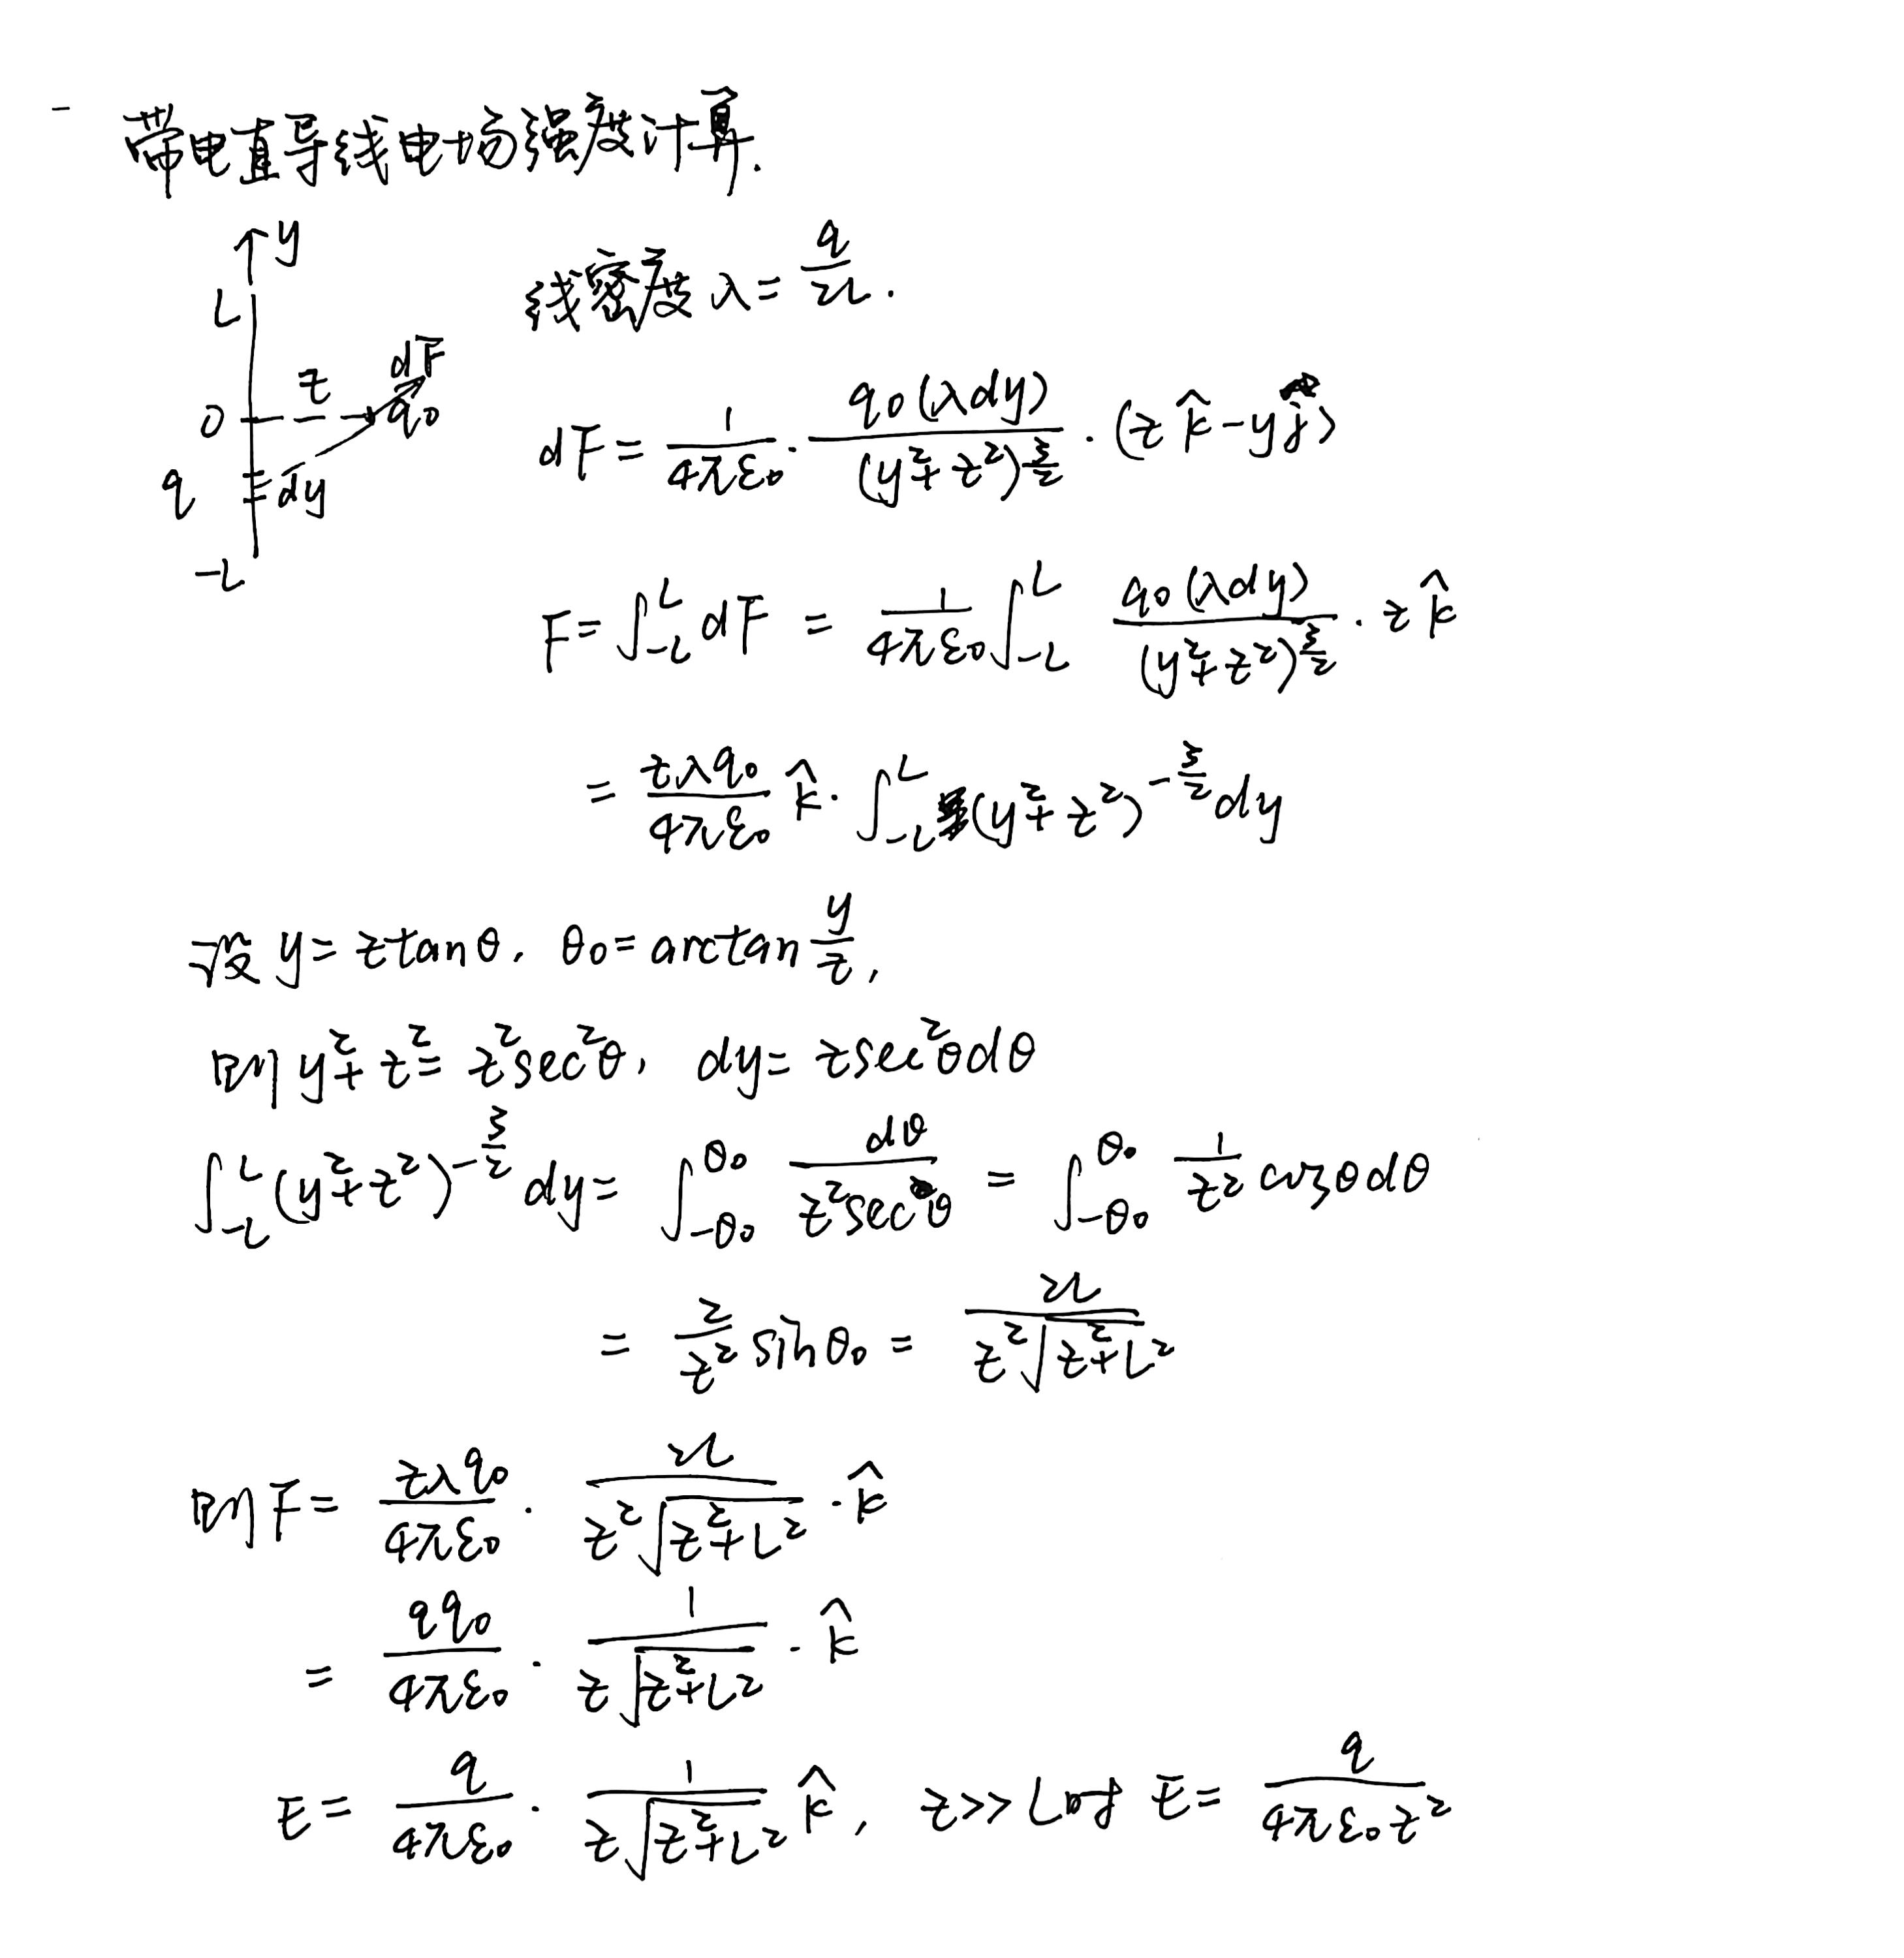 - 带电直导线电场强度计算.
↑y
L
z
dF
0
q0
q
dy
-L
线密度 λ = q/2L.
dF = 1/4πε0 · q0(λdy)/(y²+z²)^(3/2) · (z k̂ - y ĵ)
F = ∫_{-L}^{L} dF = 1/4πε0 ∫_{-L}^{L} q0(λdy)/(y²+z²)^(3/2) · z k̂
= zλq0/4πε0 k̂ · ∫_{-L}^{L} (y²+z²)^(-3/2) dy
设 y = z tanθ, θ0 = arctan y/z,
则 y²+z² = z²sec²θ, dy = z sec²θdθ
∫_{-L}^{L} (y²+z²)^(-3/2) dy = ∫_{-θ0}^{θ0} dθ/z²secθ = ∫_{-θ0}^{θ0} 1/z² cosθdθ
= 2/z² sinθ0 = 2L/z²√(z²+L²)
则 F = zλq0/4πε0 · 2L/z²√(z²+L²) · k̂
= qq0/4πε0 · 1/z√(z²+L²) · k̂
E = q/4πε0 · 1/z√(z²+L²) k̂, z>>L时 E = q/4πε0z²